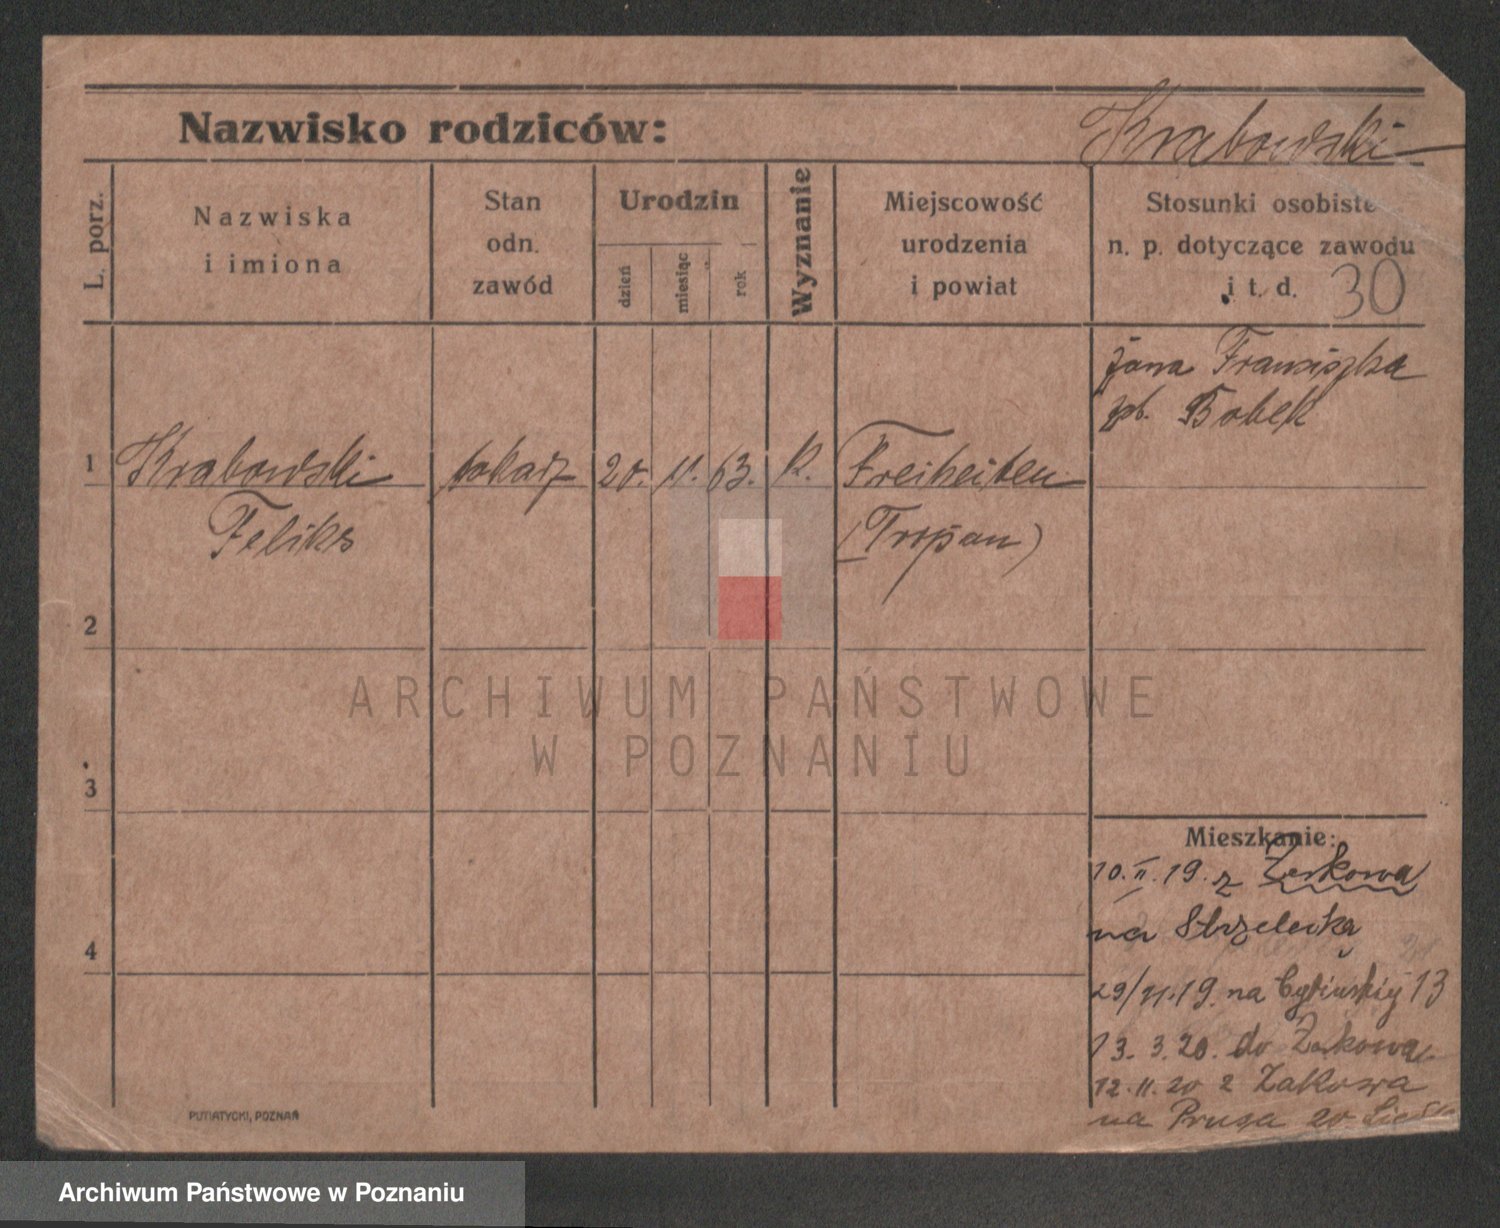 Nazwisko rodziców: Krabowski
L. porz.
Nazwiska
i imiona
Stan
odn.
zawód
Urodzin
dzień
miesiąc
rok
Wyznanie
Miejscowość
urodzenia
i powiat
Stosunki osobiste
n. p. dotyczące zawodu
i t. d. 30
żona Franciszka
zb. Bobek
1 Krabowski tokarz 20. 11. 63. K. Freiheiten
Feliks (Tropau)
2
3
4
ARCHIWUM PAŃSTWOWE
W POZNANIU
Mieszkanie:
10. II. 19. z Żerkowa
na Strzelecką
29/VI.19. na 13
13. 3. 20. do
12. 11. 20 z
na Prusa 20
PUTIATYCKI, POZNAŃ
Archiwum Państwowe w Poznaniu